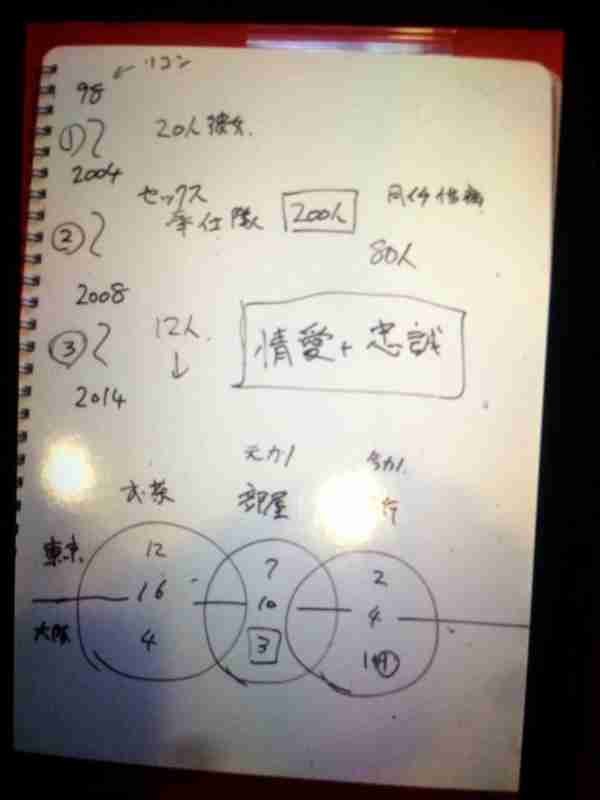 98 ← リコン
① 20人彼女.
2004
セックス
奉仕隊 200人
②
80人
2008
③ 12人.
↓
情愛+忠誠
2014
元カノ 今カノ
お茶 部屋
東京 12 7 2
16 10 4
大阪 4 3 1